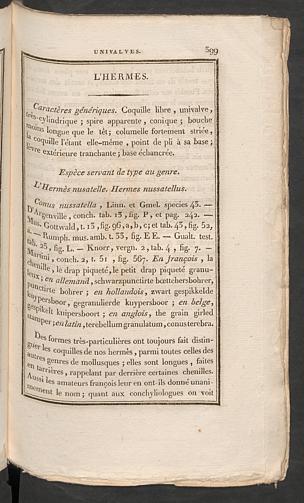 UNIVALVES. 599
L'HERMES.
Caractères génériques. Coquille libre, univalve,
très-cylindrique ; spire apparente, conique ; bouche
moins longue que le têt ; columelle fortement striée,
la coquille l'étant elle-même, point de pli à sa base ;
lèvre extérieure tranchante ; base échancrée.
Espèce servant de type au genre.
L'Hermès nusatelle. Hermes nussatellus.
Conus nussatella, Linn. et Gmel. species 43. —
D'Argenville, conch. tab. 13, fig. P, et pag. 242. —
Mus. Gottwald, t. 13, fig. 96, a, b, c ; et tab. 43, fig. 52,
— Rumph. mus. amb. t. 33, fig. EE. — Gualt. test.
tab. 25, fig. L. — Knorr, vergn. 2, tab. 4, fig. 7. —
Martini, conch. 2, t. 51, fig. 567. En françois, la
chenille, le drap piqueté, le petit drap piqueté granu-
leux ; en allemand, schwarzpunctirte bœttchersbohrer,
punctirte bohrer ; en hollandois, zwart gespikkelde
kuypersboor, gegranulierde kuypersboor ; en belge,
gespikelt knipersboort ; en anglois, the grain girled
stamper ; en latin, terebellum granulatum, conus terebra.
Des formes très-particulières ont toujours fait distin-
guer les coquilles de nos hermès, parmi toutes celles des
autres genres de mollusques ; elles sont longues, faites
en tarrières, rappelant par derrière certaines chenilles.
Aussi les amateurs françois leur en ont-ils donné unani-
mement le nom ; quant aux conchyliologues on voit